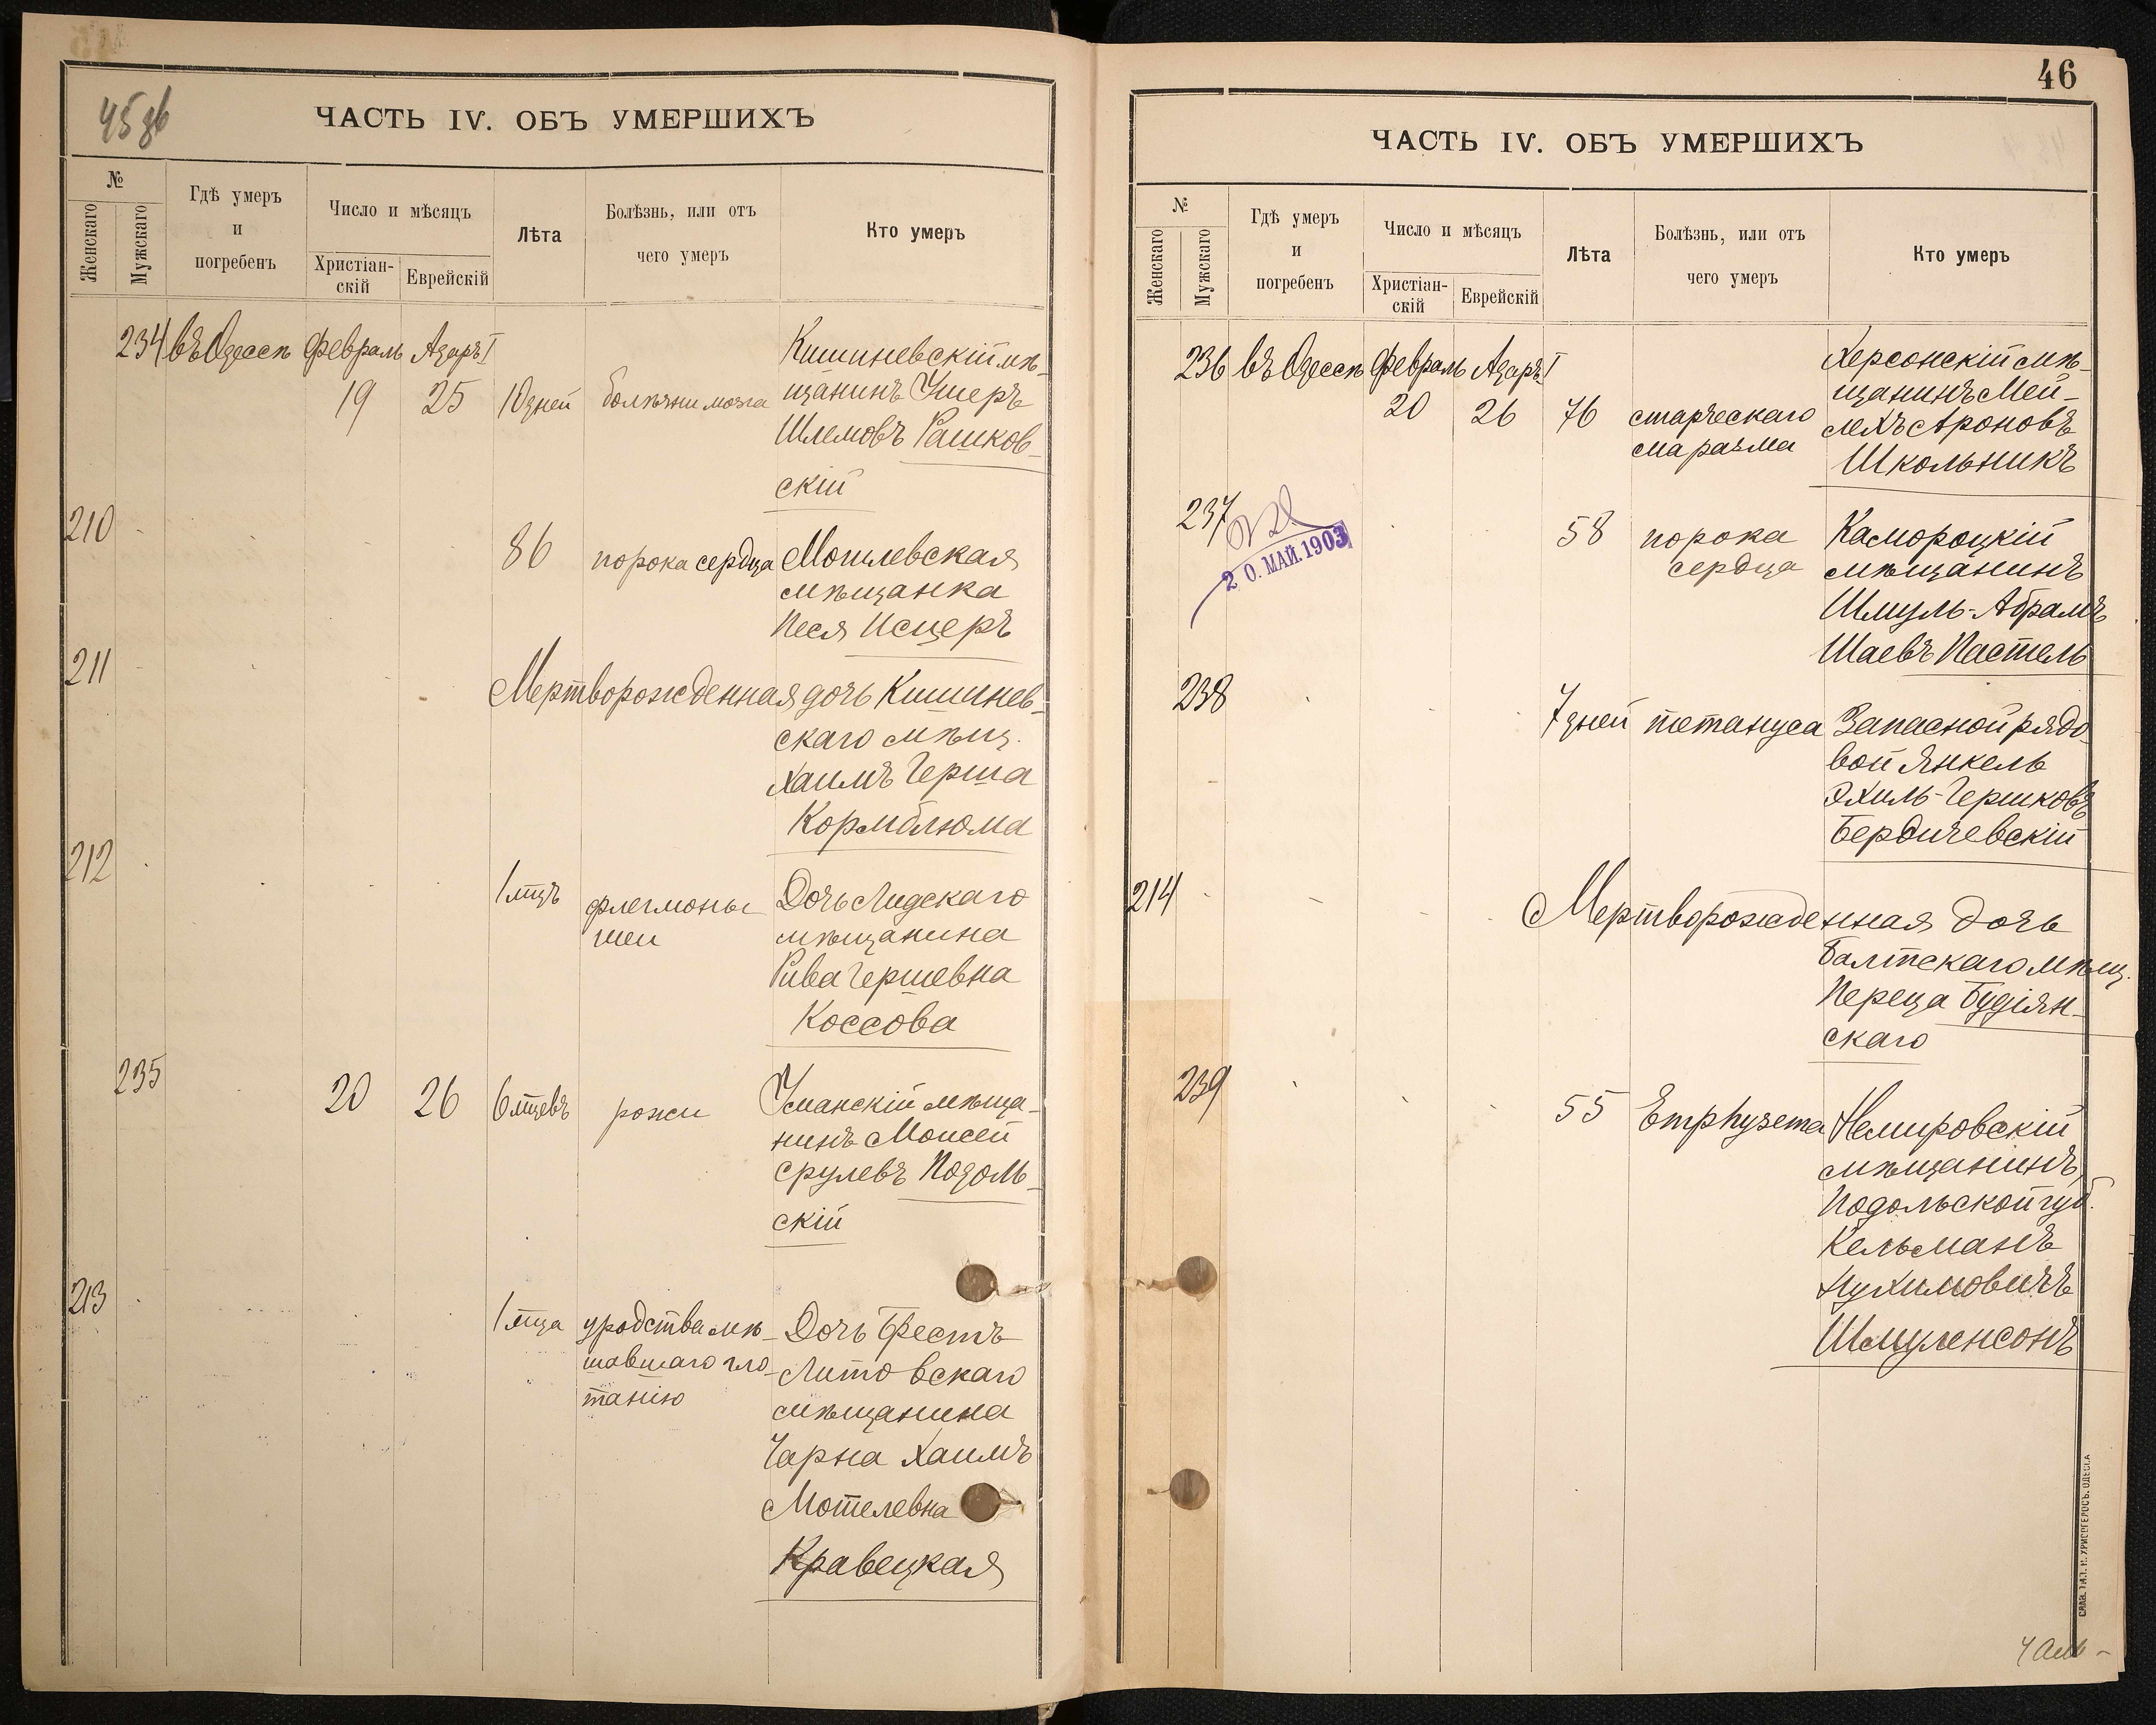 45 зв
ЧАСТЬ IV. ОБЪ УМЕРШИХЪ
№
Женскаго
Мужскаго
Гдѣ умеръ
и
погребенъ
Число и мѣсяцъ
Христіан-
скій
Еврейскій
Лѣта
Болѣзнь, или отъ
чего умеръ
Кто умеръ
234 въ Одессѣ Февраль Адаръ I Кишиневскій мѣ-
19 25 10 дней болѣзни мозга щанинъ Ушеръ
Шлемовъ Рашков-
скій
210
86 порока сердца Могилевская
мѣщанка
Песя Исцеръ
211
Мертворожденная дочь Кишинев-
скаго мѣщ.
Хаимъ Герша
Кормблюма
212
1 мцъ флегмоны Дочь Лидскаго
шеи мѣщанина
Рива Гершевна
Коссова
235 20 26 6 мцевъ рожи Уманскій мѣща-
нинъ Моисей
Срулевъ Подоль-
скій
213
1 мца уродства мѣ- Дочь Брестъ
шавшаго гло- Литовскаго
танію мѣщанина
Чарна Хаимъ
Мотелевна
Кравецкая
46
ЧАСТЬ IV. ОБЪ УМЕРШИХЪ
№
Женскаго
Мужскаго
Гдѣ умеръ
и
погребенъ
Число и мѣсяцъ
Христіан-
скій
Еврейскій
Лѣта
Болѣзнь, или отъ
чего умеръ
Кто умеръ
236 въ Одессѣ Февраль Адаръ I Херсонскій мѣ-
20 26 76 старческаго щанинъ Мей-
маразма лехъ Ароновъ
Школьникъ
237
20. МАЙ. 1903
58 порока Камороцкій
сердца мѣщанинъ
Шмуль-Абрамъ
Шаевъ Пастель
238
7 дней тетануса Запасной рядо-
вой Янкель
Эхиль-Гершковъ
Бердичевскій
214
Мертворожденная дочь
Балтскаго мѣщ.
Переца Будіян-
скаго
239
55 Emphysema Немировскій
мѣщанинъ,
Подольской губ.
Кельманъ
Нухимовичъ
Шмуленсонъ
СЛАВ. ТИП. Н. ХРИСОГЕЛОСЪ. ОДЕССА